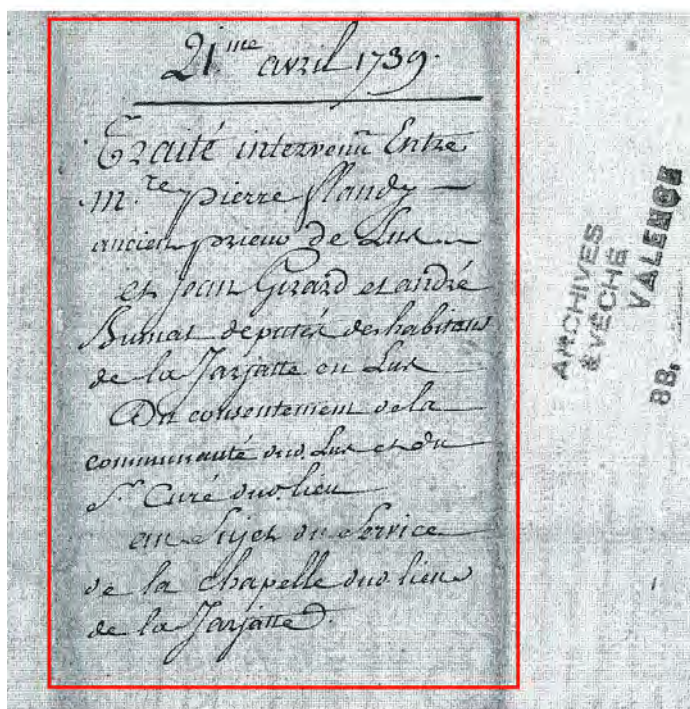 21.me avril 1739.
Traité intervenu Entre
m.re pierre
ancien prieur de Lus
et jean Girard et andré
députés des habitans
de la Jarjatte en Lus
Du consentement de la
communauté dud. Lus et du
S.r Curé dud. lieu
au sujet du service
de la chapelle dud. lieu
de la Jarjatte
ARCHIVES
EVÊCHÉ
VALENCE
8B.